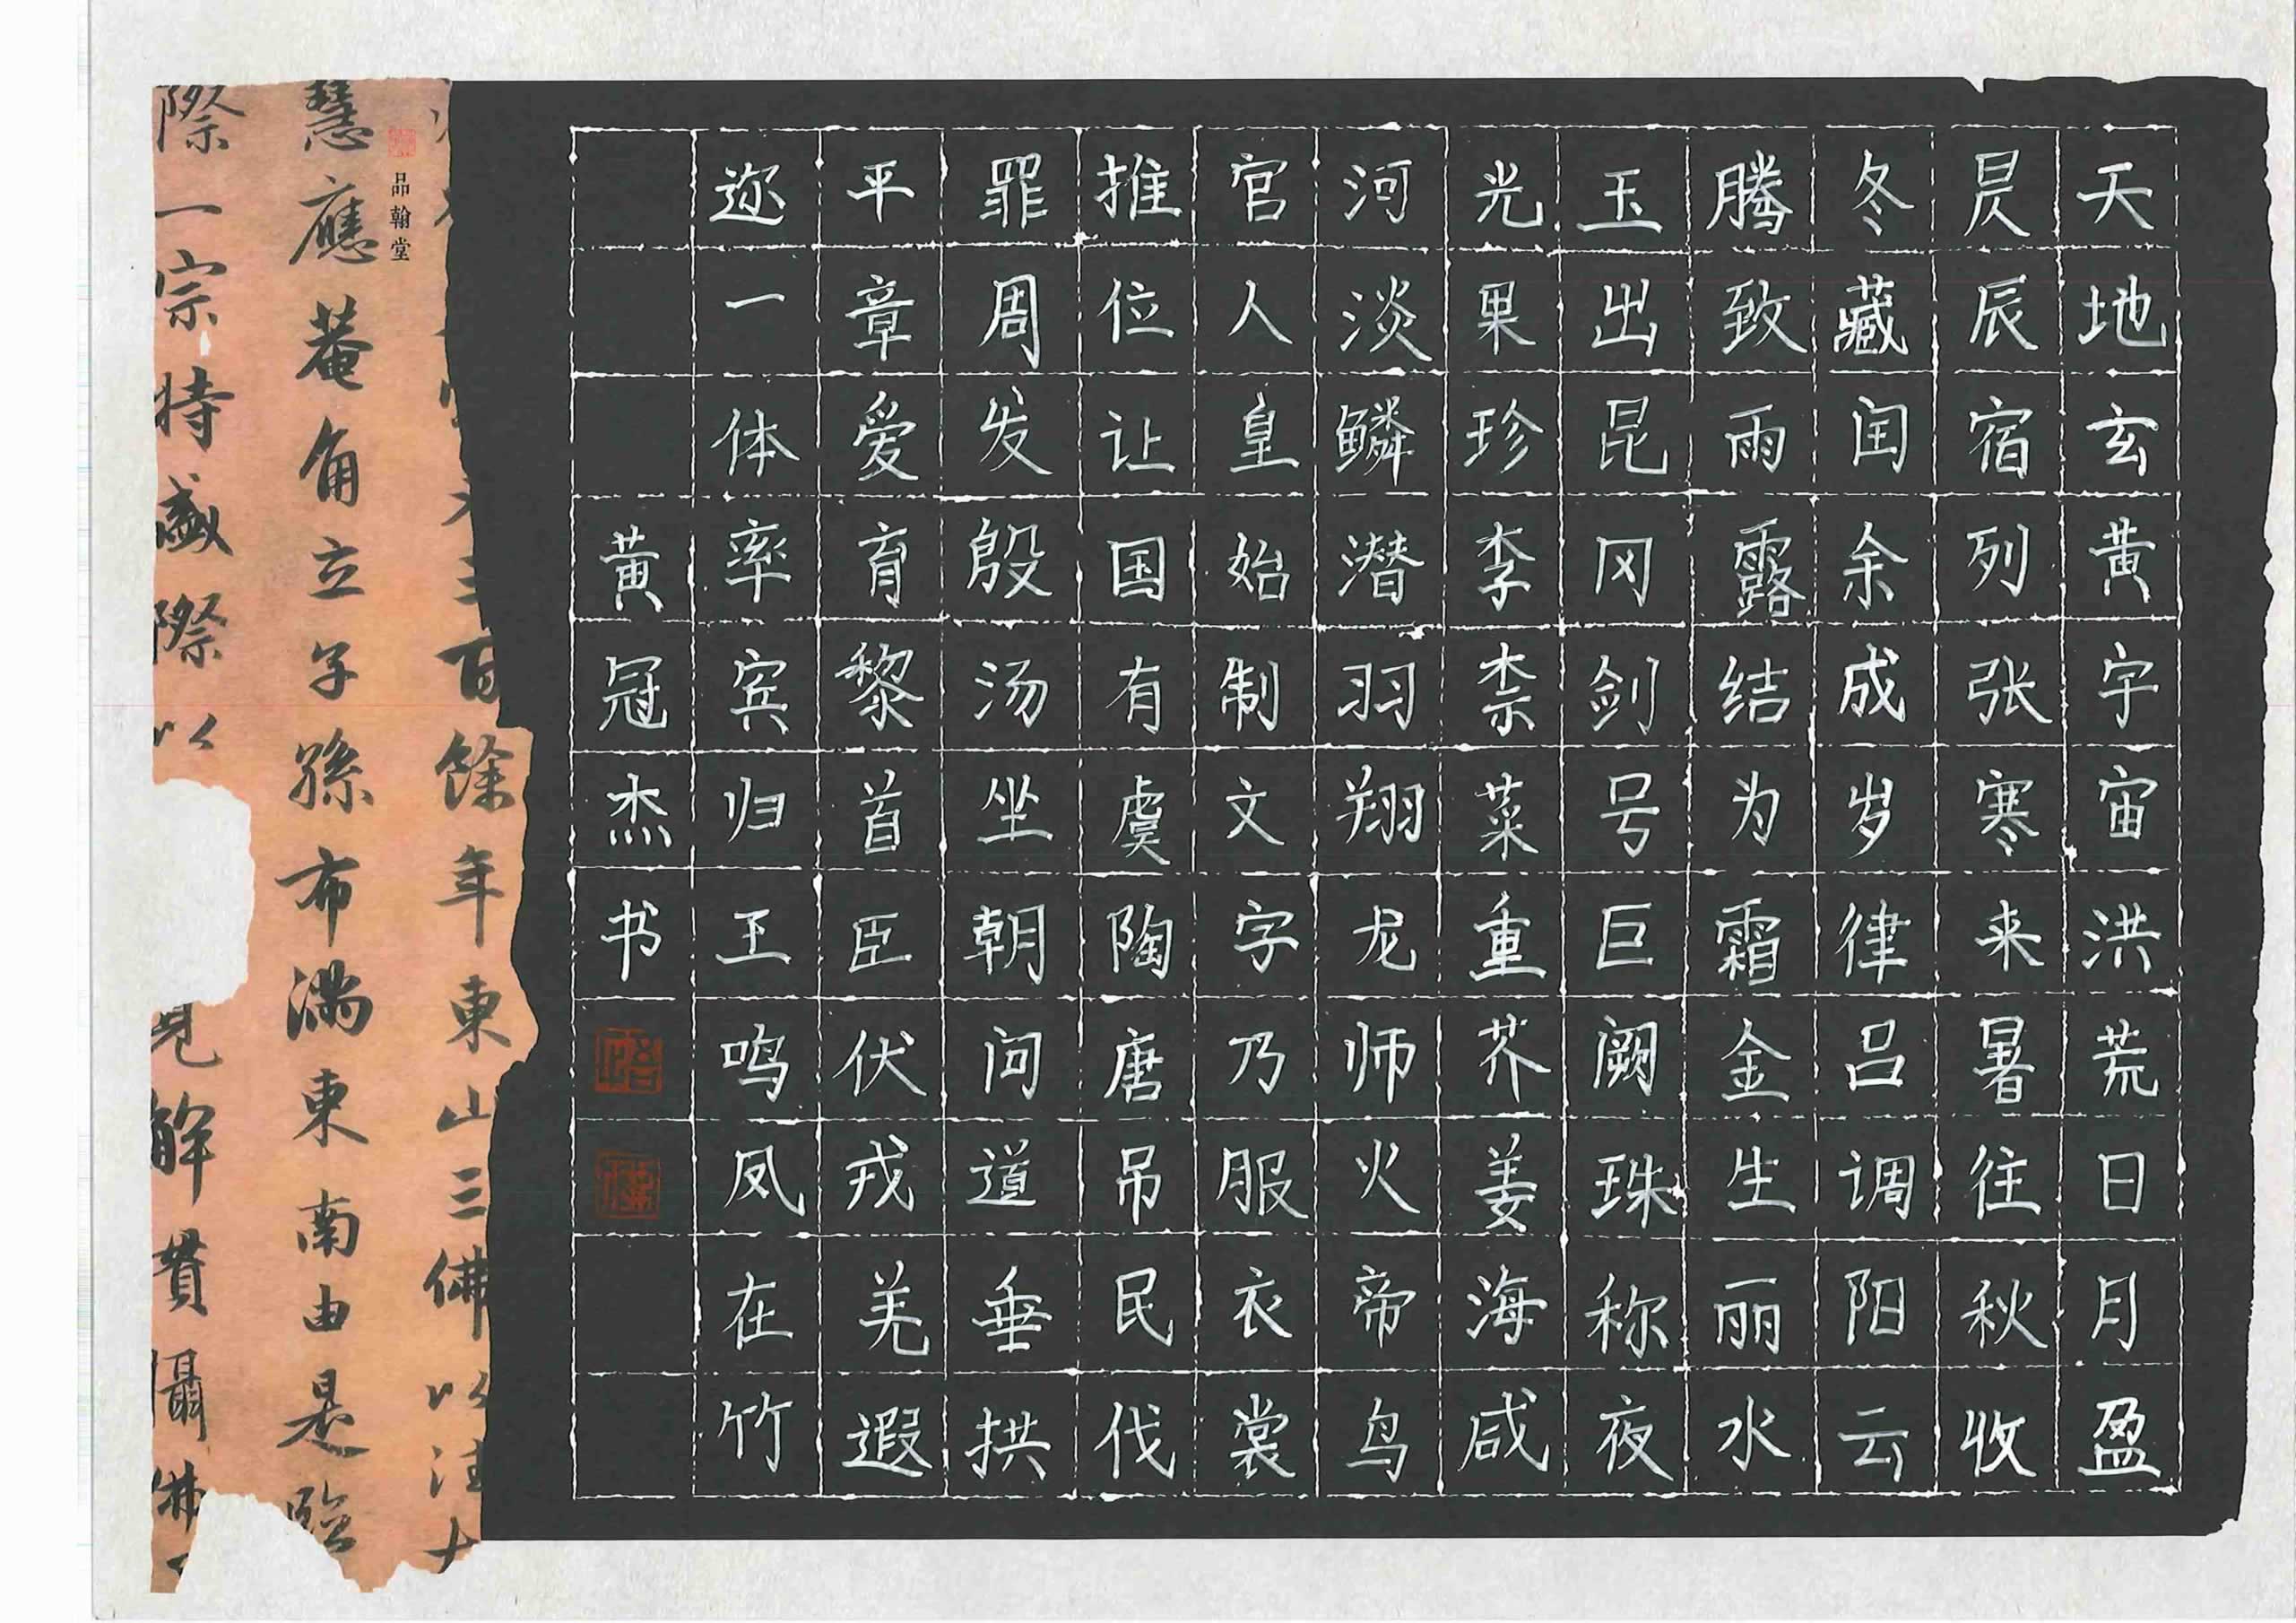 天地玄黄宇宙洪荒日月盈
昃辰宿列张寒来暑往秋收
冬藏闰余成岁律吕调阳云
腾致雨露结为霜金生丽水
玉出昆冈剑号巨阙珠称夜
光果珍李柰菜重芥姜海咸
河淡鳞潜羽翔龙师火帝鸟
官人皇始制文字乃服衣裳
推位让国有虞陶唐吊民伐
罪周发殷汤坐朝问道垂拱
平章爱育黎首臣伏戎羌遐
迩一体率宾归王鸣凤在竹
黄冠杰书
三百餘年東山三佛以法
品翰堂
慧應菴角立子孫布滿東南由是臨
際一宗特盛際以見解貫攝佛